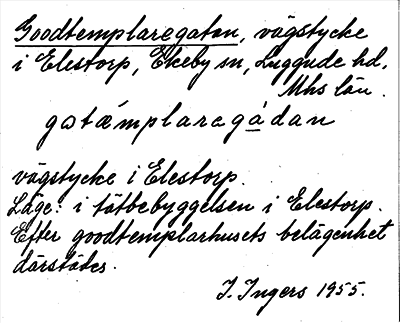 Goodtemplaregatan, vägstycke
i Elestorp, Ekeby sn, Luggude hd,
Mhs län.
gɷtǽmplaregàdan
vägstycke i Elestorp.
Läge: i tätbebyggelsen i Elestorp.
Efter goodtemplarhusets belägenhet
därstädes.
I. Ingers 1955.